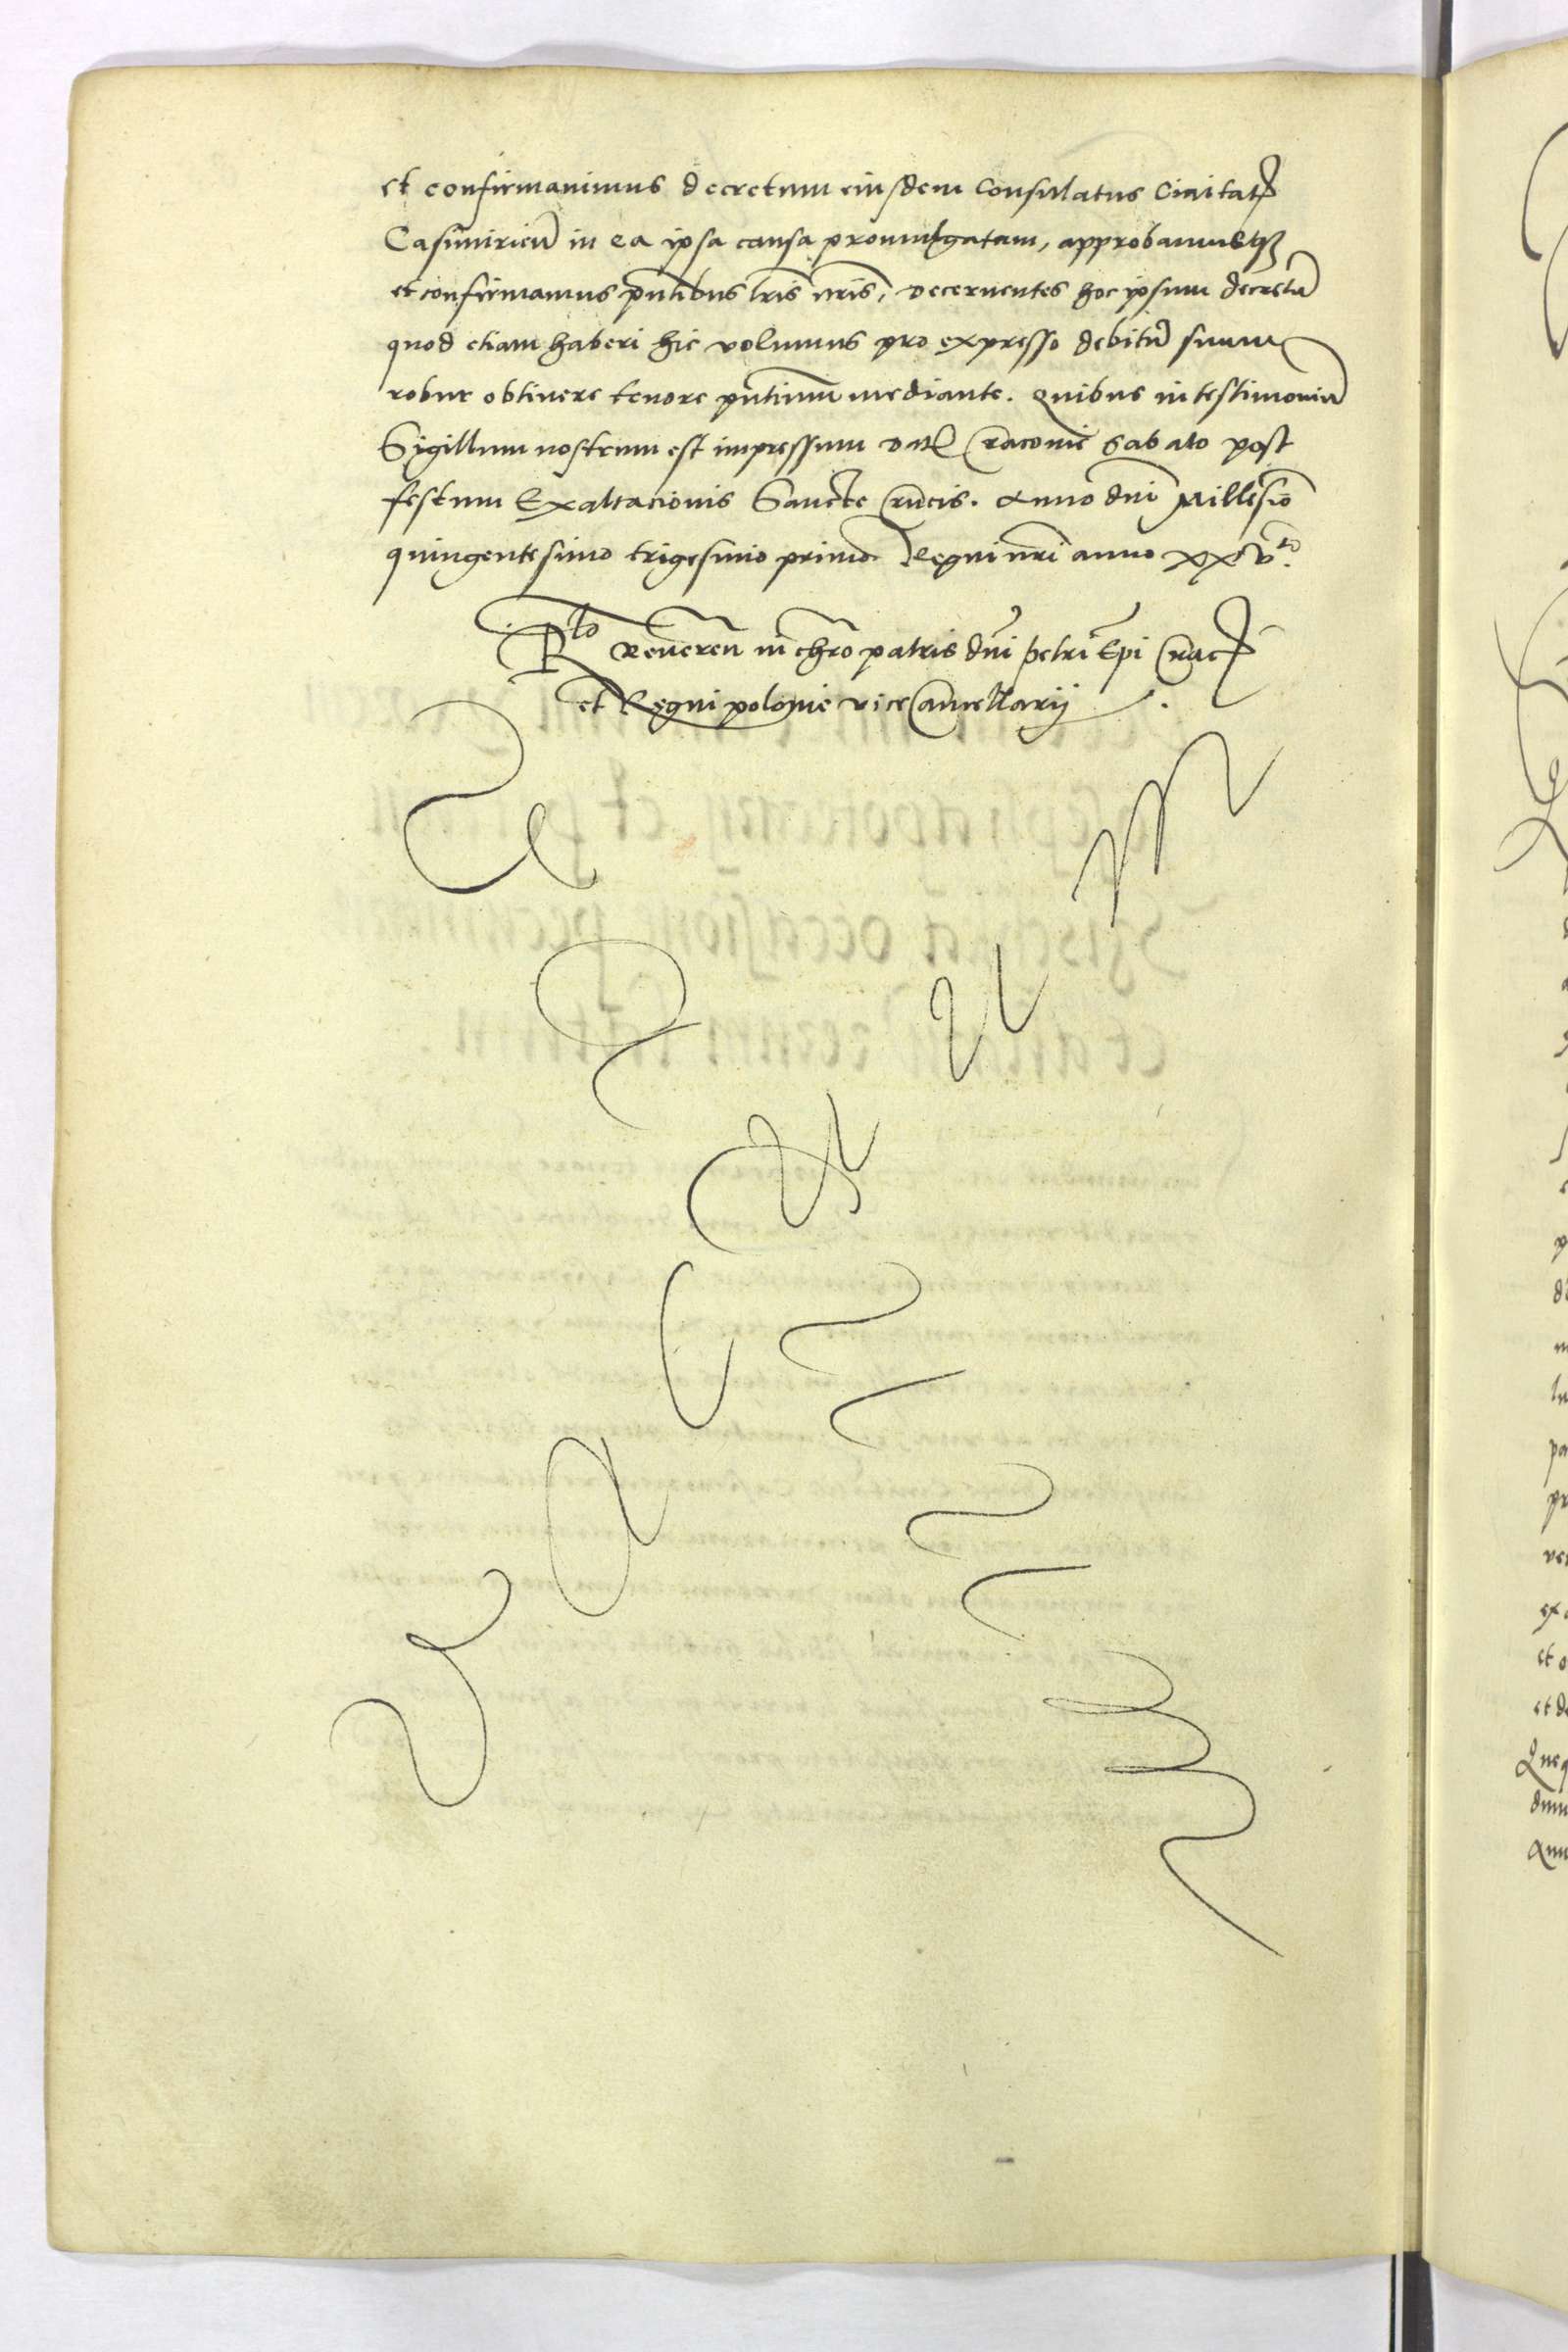 et confirmavimus decretum eiusdem Consulatus Civitatis
Casimirien̄ in ea ipsa causa promulgatam, approbamusqȝ
et confirmamus pn̄tibus lr̄is nr̄is, decernentes hoc ipsum decretū
quod etiam haberi hic volumus pro expresso debitū suum
robur obtinere tenore pn̄tium mediante. Quibus in testimoniū
Sigillum nostrum est impressum Dat Cracovie Sabato post
festum Exaltacionis Sancte Crucis. Anno dn̄i Millesīo
quingentesimo trigesimo primo Regni nr̄i anno xxvto.
Rlo Reveren̄ in chr̄o patris dn̄i Petri Ep̄i Crac
et Regni polonie viceCancellarij.
Vacuum